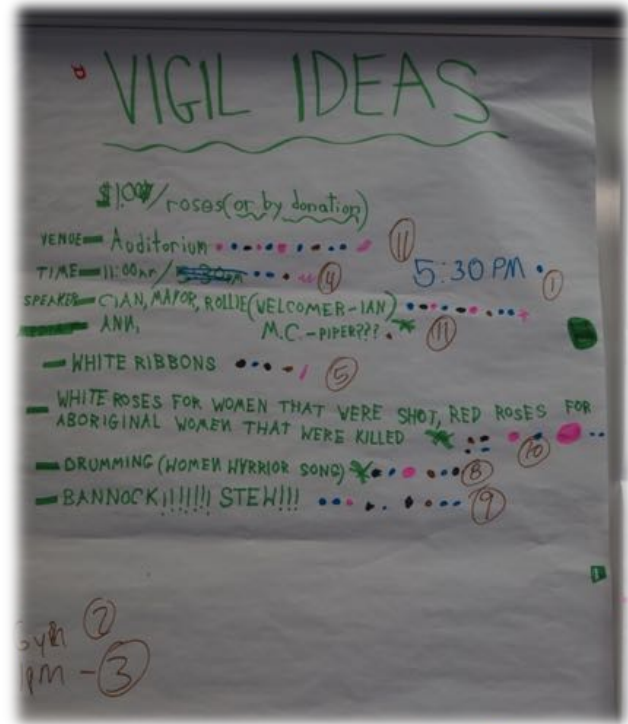 VIGIL IDEAS
$1.00/roses (or by donation)
VENUE — Auditorium (11)
TIME — 11:00AM/ (4) 5:30 PM (1)
SPEAKER — CIAN, MAYOR, ROLLIE (WELCOMER-IAN)
ANN, M.C.-PIPER???. (11)
— WHITE RIBBONS (5)
— WHITE ROSES FOR WOMEN THAT WERE SHOT, RED ROSES FOR
ABORIGINAL WOMEN THAT WERE KILLED (10)
— DRUMMING (WOMEN WYRRIOR SONG) (8)
— BANNOCK!!!!!!! STEW!!! (9)
Gym (2)
1PM - (3)